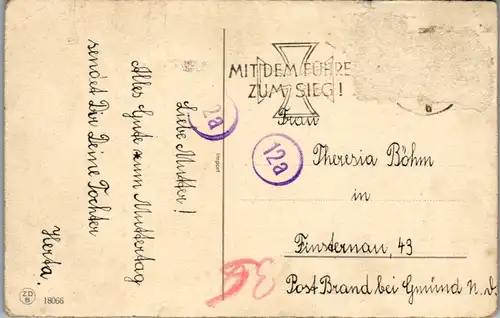 Liebe Mutter!
Alles Gute zum Muttertag
sendet Dir Deine Tochter
Herta.
MIT DEM FÜHRE
ZUM SIEG!
2a
12a
Import
Frau
Theresia Böhm
in
Finsternau, 43
Post Brand bei Gmünd N. d.
36
ZD
B
18066